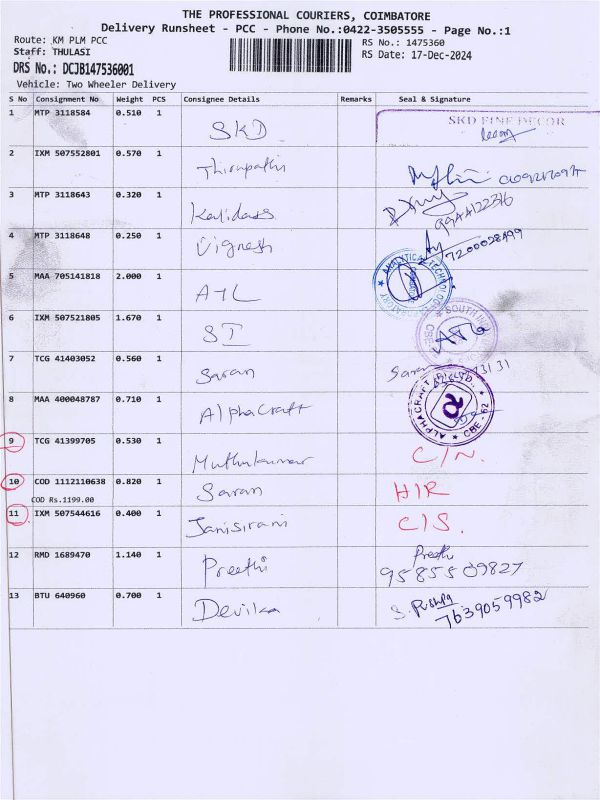 THE PROFESSIONAL COURIERS, COIMBATORE
Delivery Runsheet - PCC - Phone No.:0422-3505555 - Page No.:1
Route: KM PLM PCC
Staff: THULASI
DRS No.: DCJB147536001
Vehicle: Two Wheeler Delivery
RS No.: 1475360
RS Date: 17-Dec-2024
S No Consignment No Weight PCS Consignee Details Remarks Seal & Signature
1 MTP 3118584 0.510 1 SKD SKD FINE DECOR
2 IXM 507552801 0.570 1 Thirupathi
3 MTP 3118643 0.320 1 Kalidass 9944122316
4 MTP 3118648 0.250 1 Vignesh 7200028499
5 MAA 705141818 2.000 1 ATL ANALYTICAL TECHNOLOGY
6 IXM 507521805 1.670 1 SI SOUTH
7 TCG 41403052 0.560 1 Saran Saran
8 MAA 400048787 0.710 1 Alphacraft ALPHACRAFT CBE-62
9 TCG 41399705 0.530 1 Muthukumar C/N.
10 COD 1112110638 0.820 1 Saran H/R
COD Rs.1199.00
11 IXM 507544616 0.400 1 Janisirani C/S.
12 RMD 1689470 1.140 1 Preethi Preethi
9585509827
13 BTU 640960 0.700 1 Devika S. Pushpa
7639059982